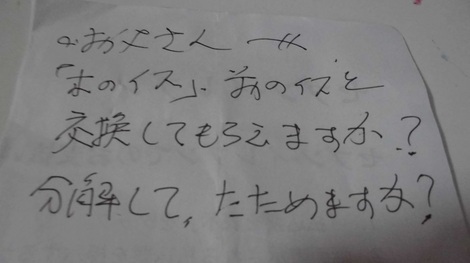 お父さんへ
「木のイス」、前のイスと
交換してもらえますか?
分解して、たためますか?